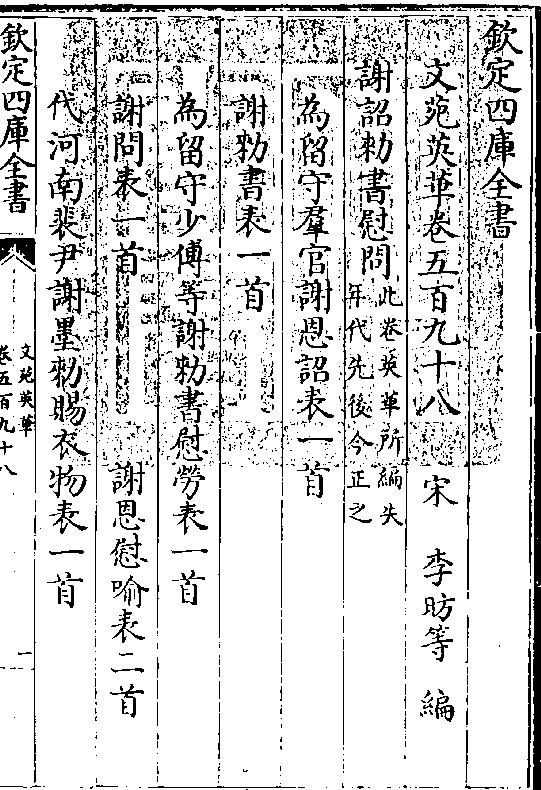 欽定四庫全書
文苑英華卷五百九十八　宋　李昉等　編
謝詔勅書慰問此卷英華所編失年代先後今正之
為留守羣官謝恩詔表一首
謝勅書表一首
為留守少傅等謝勅書慰勞表一首
謝問表一首　謝恩慰喻表二首
代河南裴尹謝墨勅賜衣物表一首
欽定四庫全書
文苑英華
卷五百九十八
一